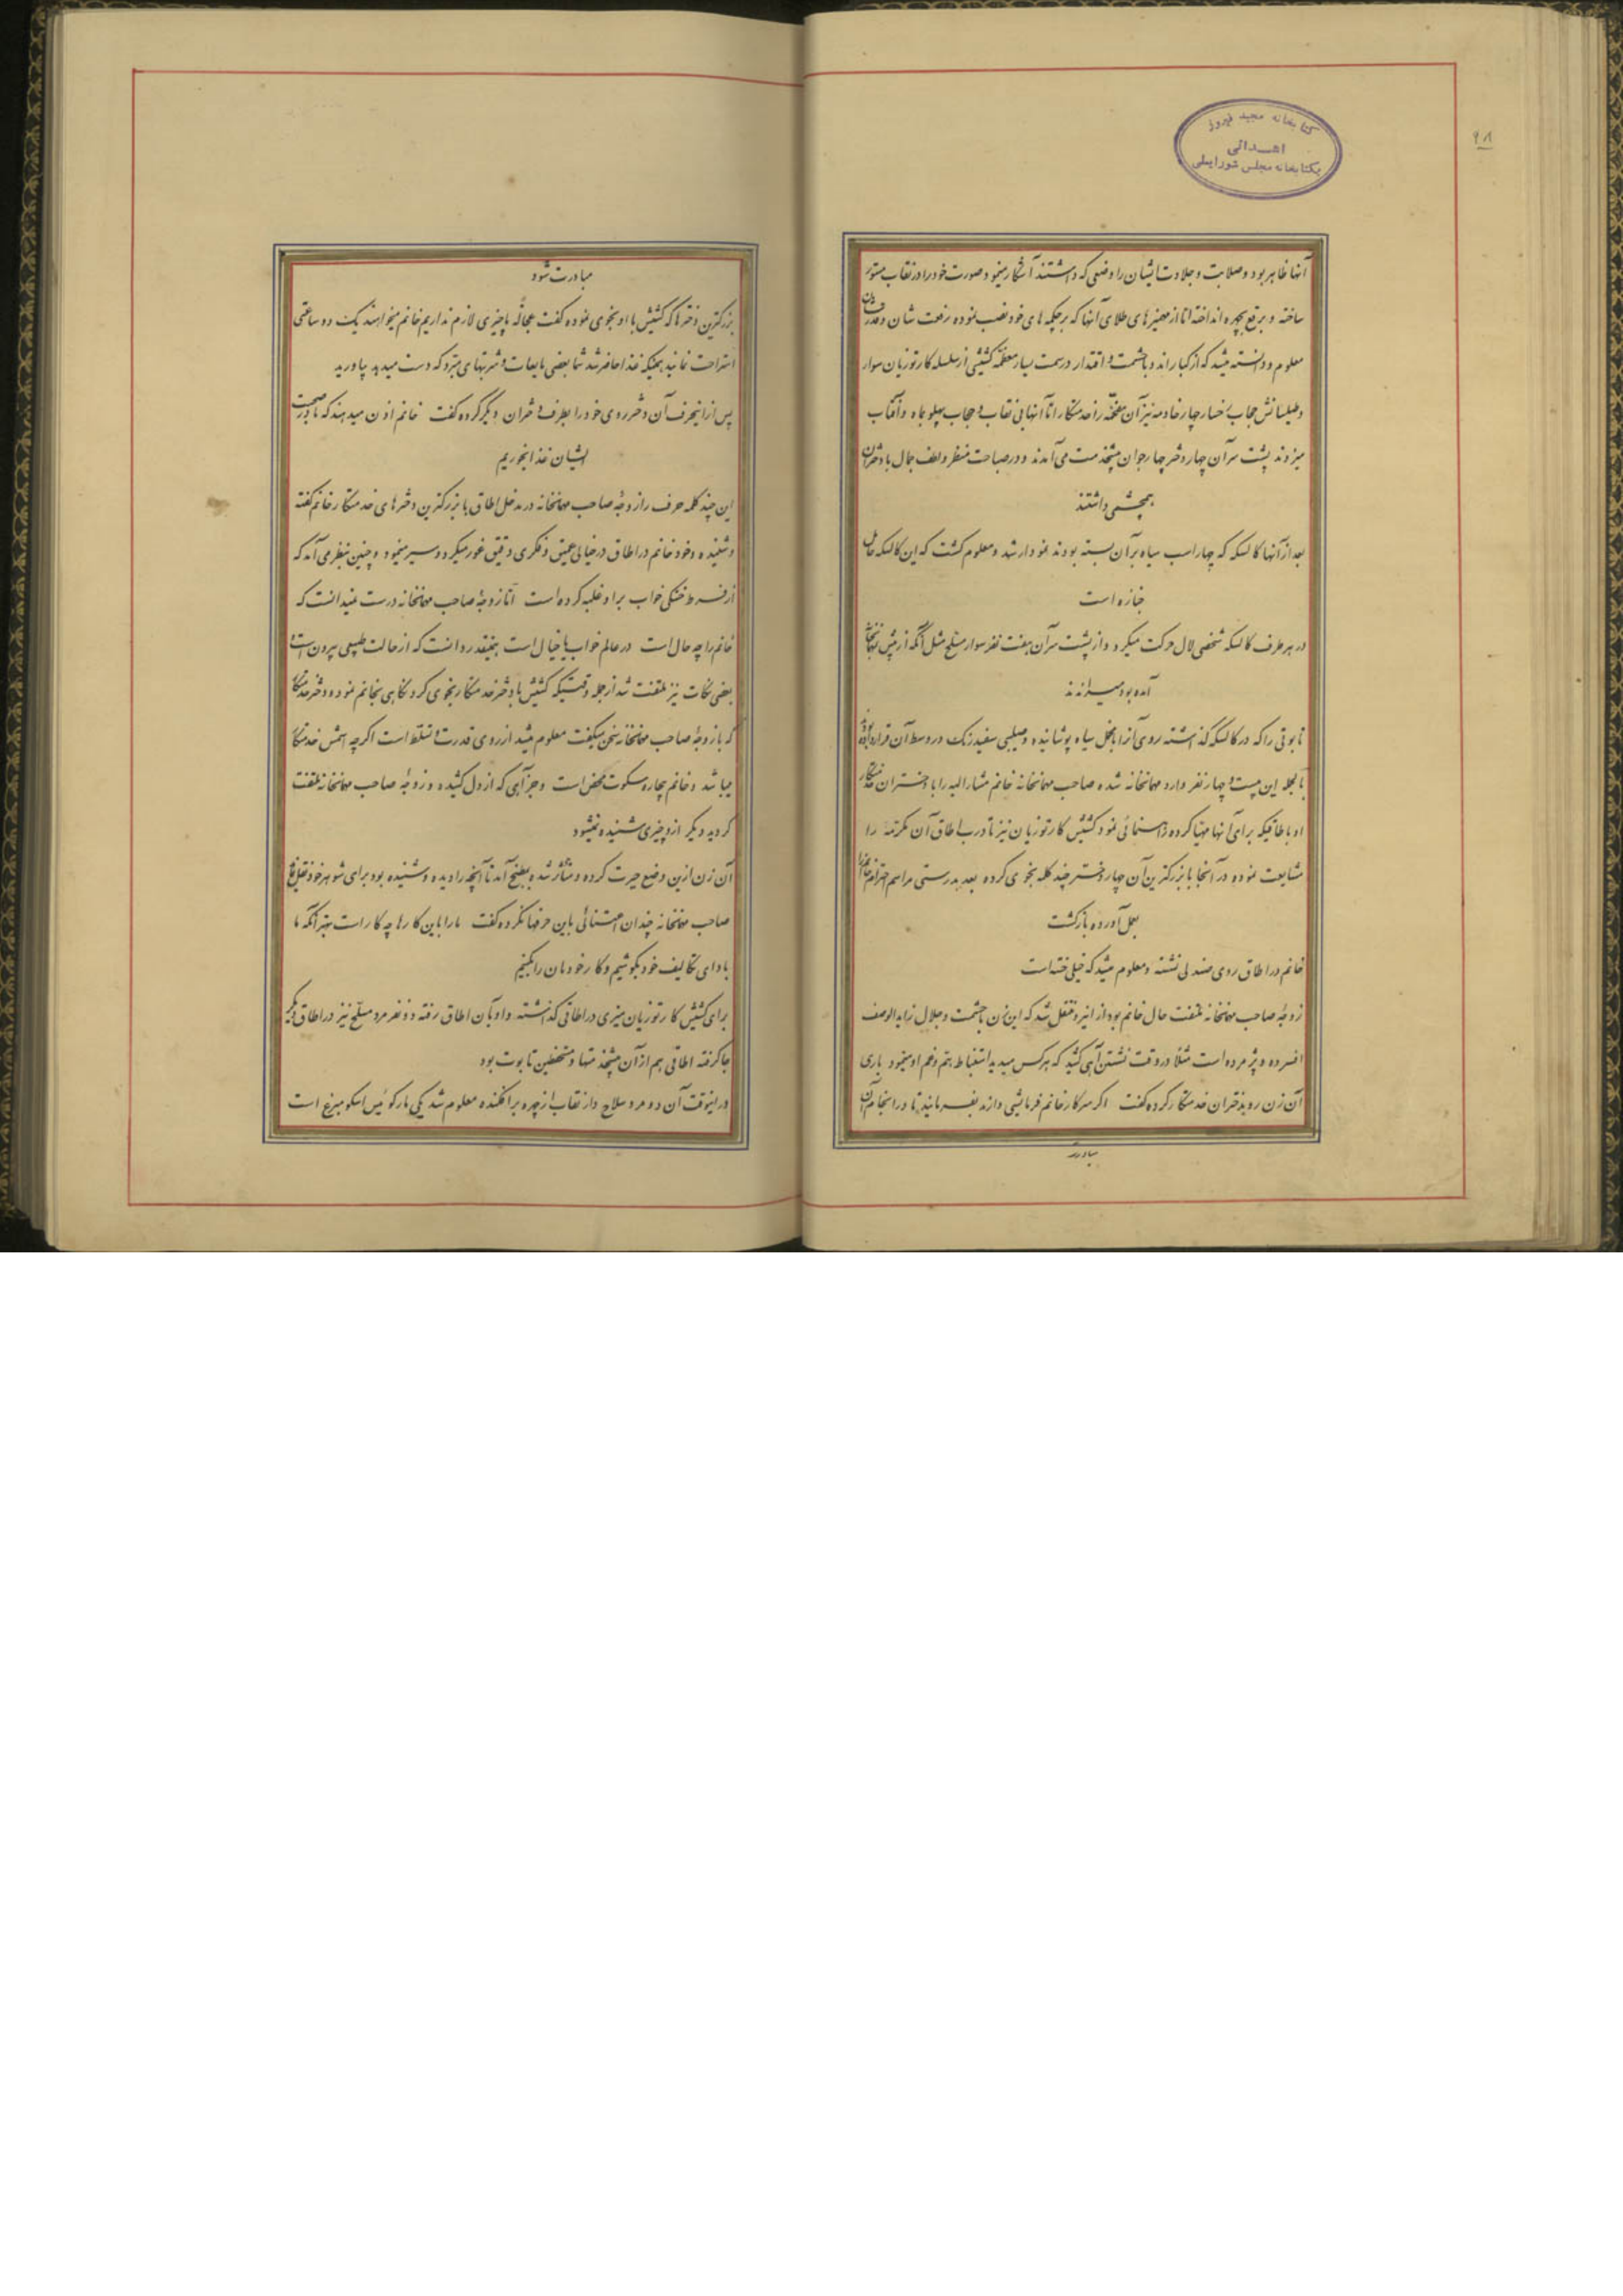 ۹۸
کتابخانه مجید فیروز
اهدائی
بکتابخانه مجلس شورایملی
آنها ظاهر بود و صلابت و جلادت ایشان را وضعی که داشتند آشکار مینمود صورت خود را در نقاب مستور
ساخته و برقع بچهره انداخته اما از مهمیزهای طلای آنها که بر چکمه های خود نصب نموده رفعت شان و قدرشان
معلوم و دانسته میشد که از کبارند و با حشمت و اقتدار در سمت یسار معظمه کشیشی از سلسله کارتوزیان سوار
و طیلسانش حجاب رخسار چهار خادمه نیز آن مفخمه را خدمتکار اما آنها بی نقاب و حجاب پهلو بماه و آفتاب
میزدند پشت سر آن چهار دختر چهار جوان پیشخدمت می‌آمدند و در صباحت منظر و لطف جمال با دختران
همچشمی داشتند
بعد از آنها کالسکه که چهار اسب سیاه بر آن بسته بودند نمودار شد و معلوم گشت که این کالسکه حامل
جنازه است
در هر طرف کالسکه شخصی لال حرکت میکرد و از پشت سر آن هفت نفر سوار مسلح مثل آنکه از پیش
آمده بود میراندند
تابوتی را که در کالسکه گذاشته روی آنرا با مخمل سیاه پوشانیده و صلیبی سفید رنگ در وسط آن قرار داده بودند
بالجمله این بیست و چهار نفر وارد مهمانخانه شده صاحب مهمانخانه خانم مشارالیه را با دختران خدمتکار
او باطاقیکه برای آنها مهیا کرده راهنمائی نمود کشیش کارتوزیان نیز تا در باطاق آن مکرمه را
مشایعت نموده در آنجا با بزرگترین آن چهار دختر چند کلمه نجوی کرده بعد بدرستی مراسم احترام خانم را
بعمل آورده بازگشت
خانم در اطاق روی صندلی نشسته و معلوم میشد که خیلی خسته است
زوجه صاحب مهمانخانه ملتفت حال خانم بود از اینرو منتقل شد که این زن با حشمت و جلال زاید الوصف
افسرده و پژمرده است مثلا در وقت نشستن آهی کشید که هر کس میدید استنباط هم و غم او مینمود باری
آن زن رو بدختران خدمتکار کرده گفت اگر سرکار خانم فرمایشی دارند بفرمایند تا در انجام آن
مبادرت
مبادرت شود
بزرگترین دخترها که کشیش با او نجوی نموده گفت عجالةً ما چیزی لازم نداریم خانم میخواهند یک دو ساعتی
استراحت نمایند همینکه غذا حاضر شد شما بعضی مایعات و شربتهای مبرد که دست میدهد بیاورید
پس از اینحرف آن دختر روی خود را بطرف دختران دیگر کرده گفت خانم اذن میدهند که ما در صحبت
ایشان غذا بخوریم
این چند کلمه حرف را زوجه صاحب مهمانخانه در مدخل اطاق با بزرگترین دخترهای خدمتکار خانم گفته
و شنیده و خود خانم در اطاق در خیالی عمیق و فکری دقیق غور میکرد و سیر مینمود و چنین بنظر می‌آمد که
از فرط خستگی خواب بر او غلبه کرده است اما زوجه صاحب مهمانخانه درست نمیدانست که
خانم را چه حال است در عالم خواب یا خیال است همینقدر دانست که از حالت طبیعی بیرون است و
بعضی نکات نیز ملتفت شد از جمله وقتیکه کشیش با دختر خدمتکار نجوی کرد نگاهی بخانم نمود و دختر خدمتکار
که با زوجه صاحب مهمانخانه سخن میگفت معلوم میشد از روی قدرت و تسلط است اگرچه اسمش خدمتکار
میباشد و خانم بیچاره سکوت محض است و جز آهی که از دل کشیده و زوجه صاحب مهمانخانه ملتفت
گردید دیگر از او چیزی شنیده نمیشود
آن زن ازین وضع حیرت کرده و متأثر شده بمطبخ آمد تا آنچه را دیده و شنیده بود برای شوهر خود نقل نماید
صاحب مهمانخانه چندان اعتنائی باین حرفها نکرده گفت ما را باین کارها چه کار است بهتر آنکه ما
بادای تکالیف خود بکوشیم و کار خودمان را بکنیم
برای کشیش کارتوزیان میزی در اطاقی گذاشته و او بآن اطاق رفته دو نفر مرد مسلح نیز در اطاق دیگر
جا گرفته اطاقی هم از آن پیشخدمتها و مستحفظین تابوت بود
در اینوقت آن دو مرد سلاح دار نقاب از چهره برافکنده معلوم شد یکی مارکوئیس اسکومبرغ است